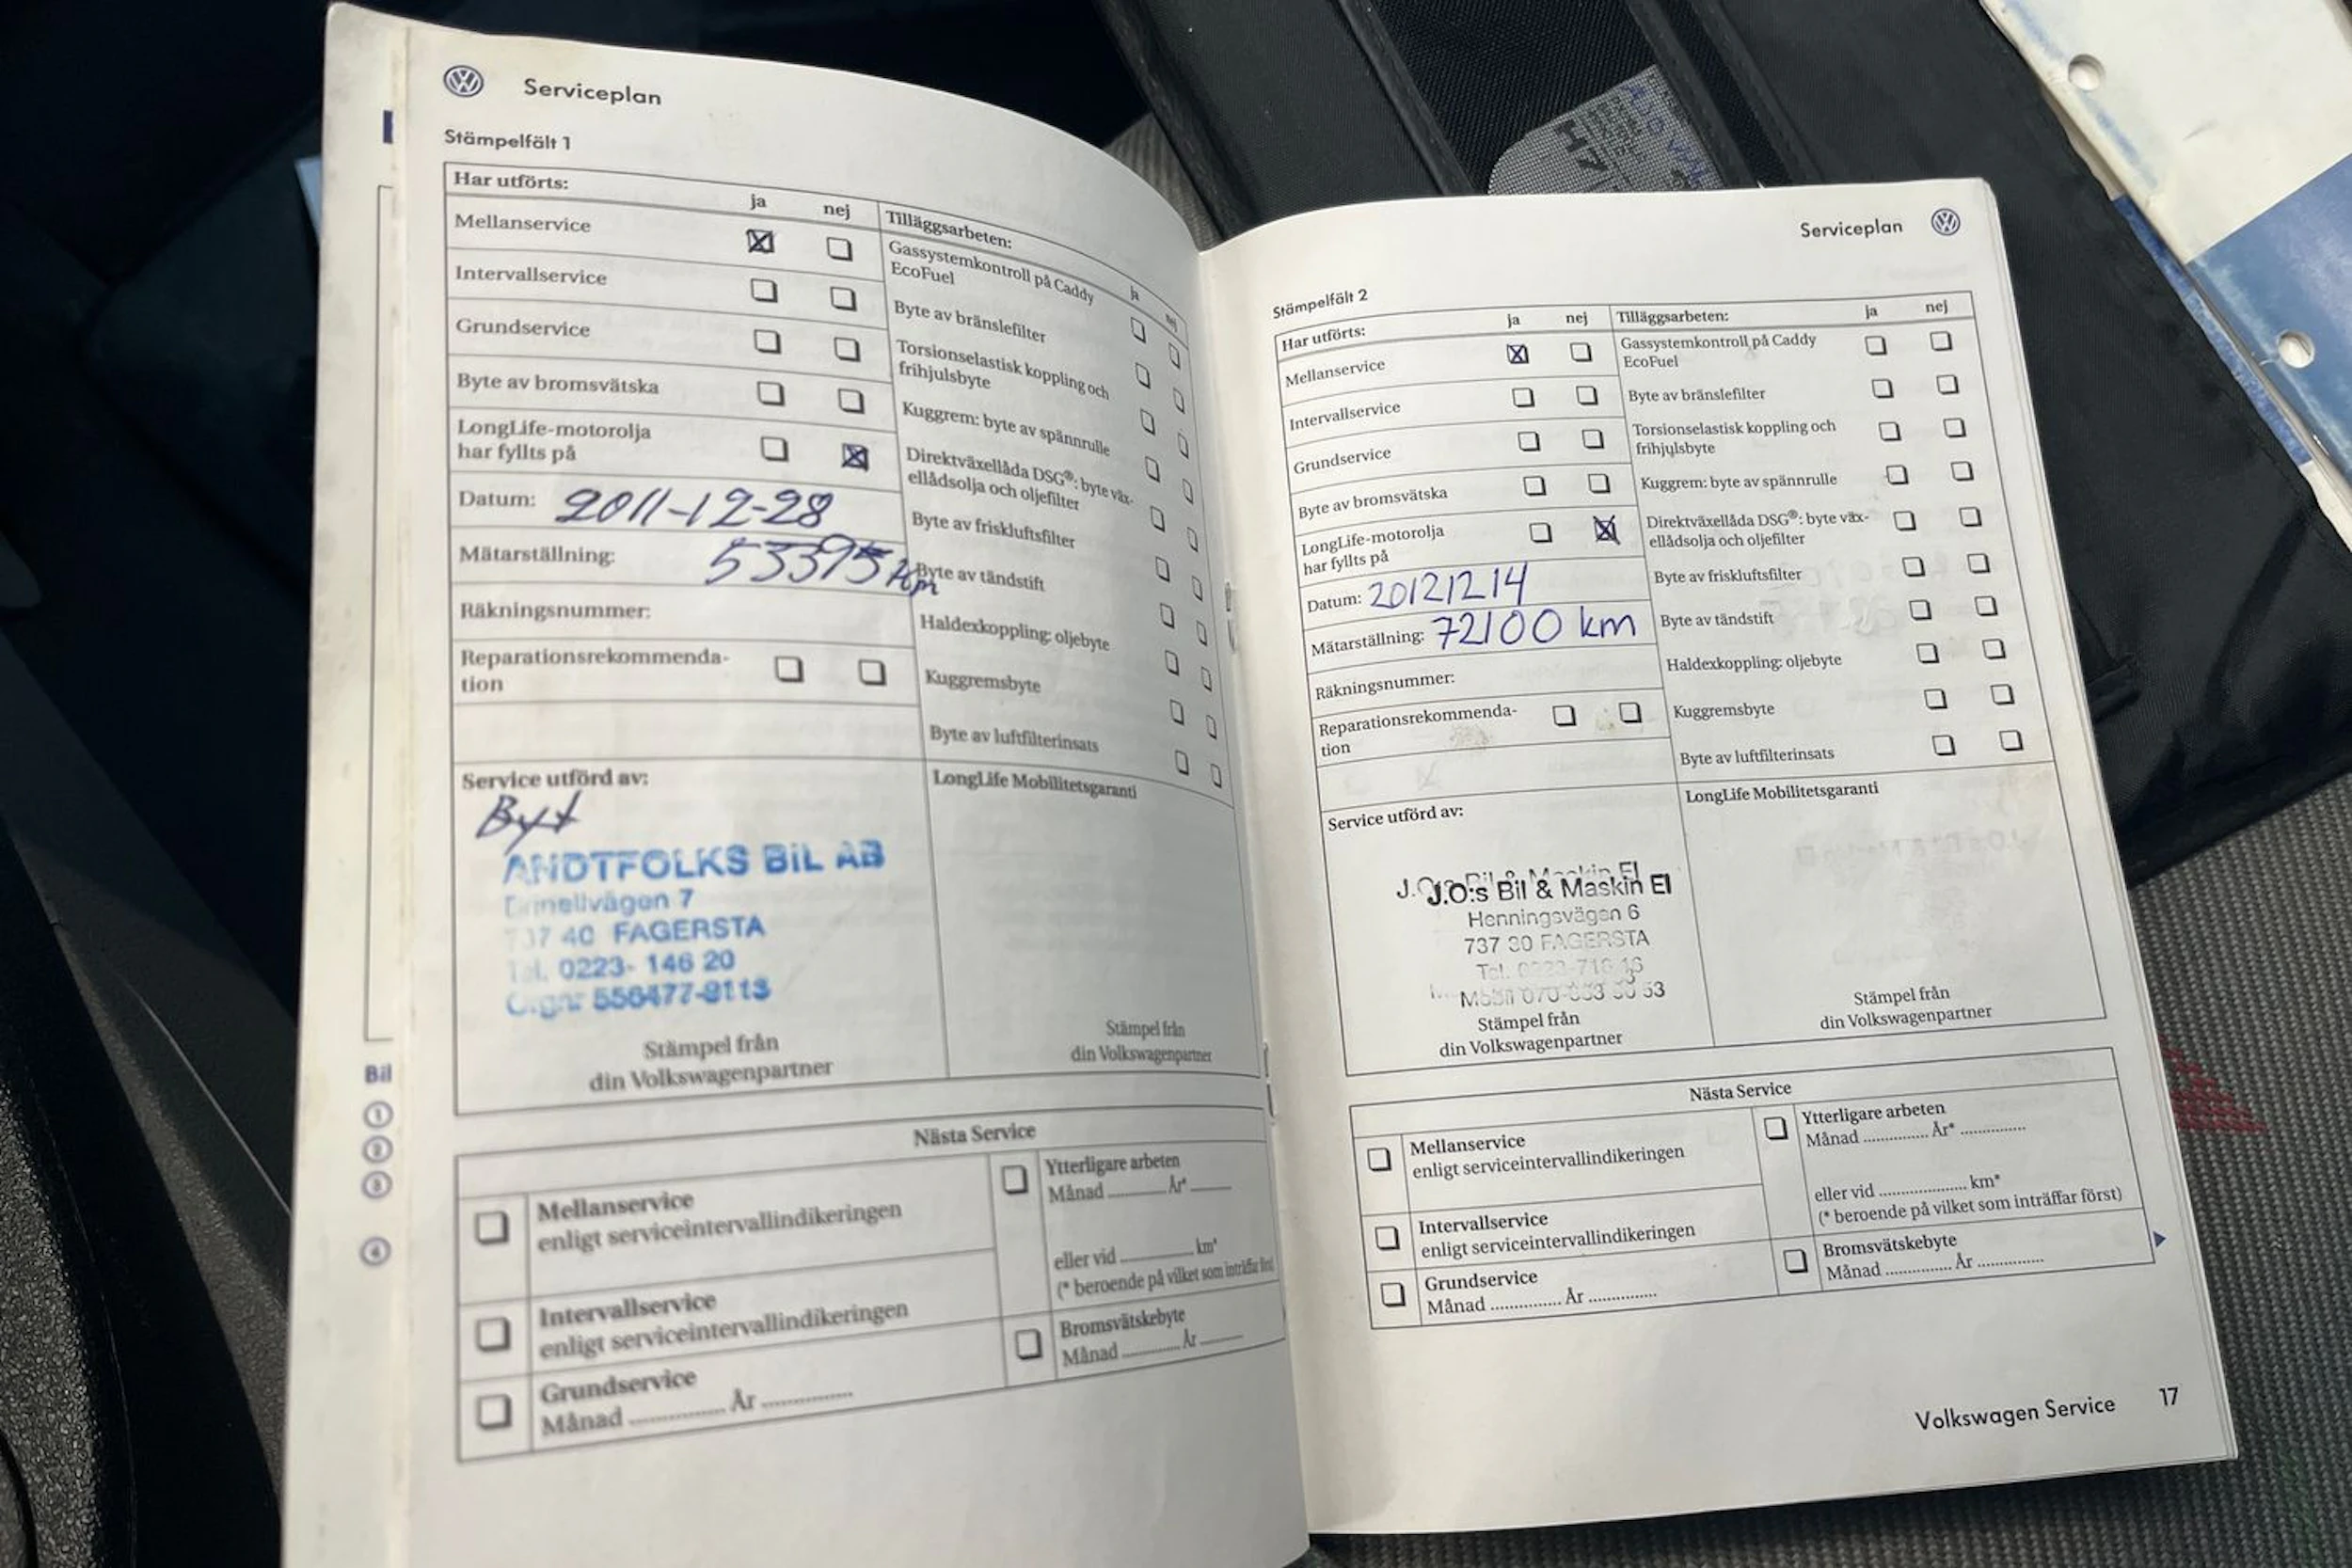 Serviceplan
Stämpelfält 1
Har utförts:
ja nej
Mellanservice
Intervallservice
Grundservice
Byte av bromsvätska
LongLife-motorolja
har fyllts på
Datum: 2011-12-28
Mätarställning: 53395 km
Räkningsnummer:
Reparationsrekommenda-
tion
Tilläggsarbeten:
ja nej
Gassystemkontroll på Caddy
EcoFuel
Byte av bränslefilter
Torsionselastisk koppling och
frihjulsbyte
Kuggrem: byte av spännrulle
Direktväxellåda DSG®: byte väx-
ellådsolja och oljefilter
Byte av friskluftsfilter
Byte av tändstift
Haldexkoppling: oljebyte
Kuggremsbyte
Byte av luftfilterinsats
Service utförd av:
Byt
ANDTFOLKS BIL AB
Brinellvägen 7
737 40 FAGERSTA
Tel. 0223- 146 20
Orgnr 556477-8113
Stämpel från
din Volkswagenpartner
LongLife Mobilitetsgaranti
Stämpel från
din Volkswagenpartner
Nästa Service
Mellanservice
enligt serviceintervallindikeringen
Intervallservice
enligt serviceintervallindikeringen
Grundservice
Månad ............... År ...............
Ytterligare arbeten
Månad ............ År* ........
eller vid .............. km*
(* beroende på vilket som inträffar först)
Bromsvätskebyte
Månad ............ År .........
Bil
1
2
3
4
Serviceplan
Stämpelfält 2
Har utförts:
ja nej
Mellanservice
Intervallservice
Grundservice
Byte av bromsvätska
LongLife-motorolja
har fyllts på
Datum: 20121214
Mätarställning: 72100 km
Räkningsnummer:
Reparationsrekommenda-
tion
Tilläggsarbeten:
ja nej
Gassystemkontroll på Caddy
EcoFuel
Byte av bränslefilter
Torsionselastisk koppling och
frihjulsbyte
Kuggrem: byte av spännrulle
Direktväxellåda DSG®: byte väx-
ellådsolja och oljefilter
Byte av friskluftsfilter
Byte av tändstift
Haldexkoppling: oljebyte
Kuggremsbyte
Byte av luftfilterinsats
Service utförd av:
J.O:s Bil & Maskin El
Henningsvägen 6
737 30 FAGERSTA
Tel. 0223-716 16
Mobil 070-
Stämpel från
din Volkswagenpartner
LongLife Mobilitetsgaranti
Stämpel från
din Volkswagenpartner
Nästa Service
Mellanservice
enligt serviceintervallindikeringen
Intervallservice
enligt serviceintervallindikeringen
Grundservice
Månad ............... År ...............
Ytterligare arbeten
Månad .............. År* ..............
eller vid ................... km*
(* beroende på vilket som inträffar först)
Bromsvätskebyte
Månad .............. År ..............
Volkswagen Service 17